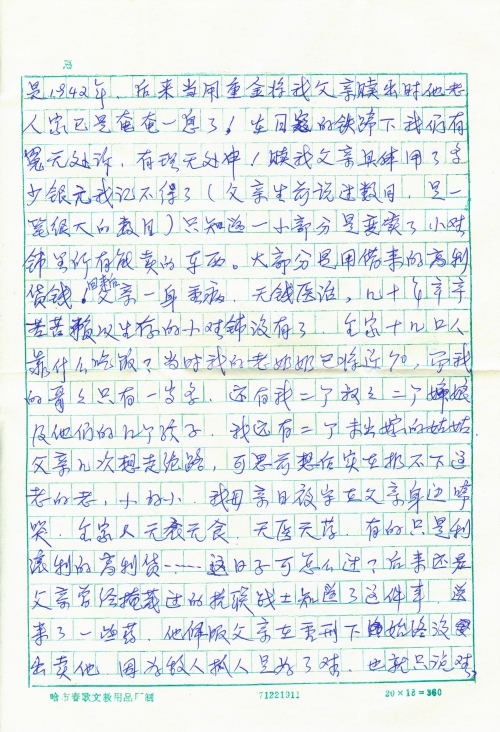 是1942年，后来当用重金将我父亲赎出时他老
人家已是奄奄一息了！在日寇的铁蹄下我们有
冤无处诉，有理无处申！赎我父亲具体用了多
少银元我记不得了（父亲生前说过数目，是一
笔很大的数目）只知道一小部分是变卖了小杂
铺里所有能卖的东西。大部分是用借来的高利
贷钱！父亲一身重病，无钱医治，几十年辛辛
苦苦赖以生存的小杂铺没有了，全家十几口人
靠什么吃饭？当时我的老奶奶已将近70，
的哥哥只有一岁多，还有我二个叔叔二个婶娘
及他们的几个孩子，我还有二个未出嫁的姑姑，
父亲几次想走绝路，可思前想后实在抛不下这
老的老，小的小，我母亲日夜守在父亲身边啼
哭，全家人无衣无食，无医无药，有的只是利
滚利的高利贷……这日子可怎么过？后来还是
父亲曾经掩护过的抗联战士知道了这件事，送
来了一些药，他佩服父亲在重刑下始终没
出卖他，因为敌人抓人是为了，也就只说
哈市春歌文教用品厂制 71221011 20×18=360